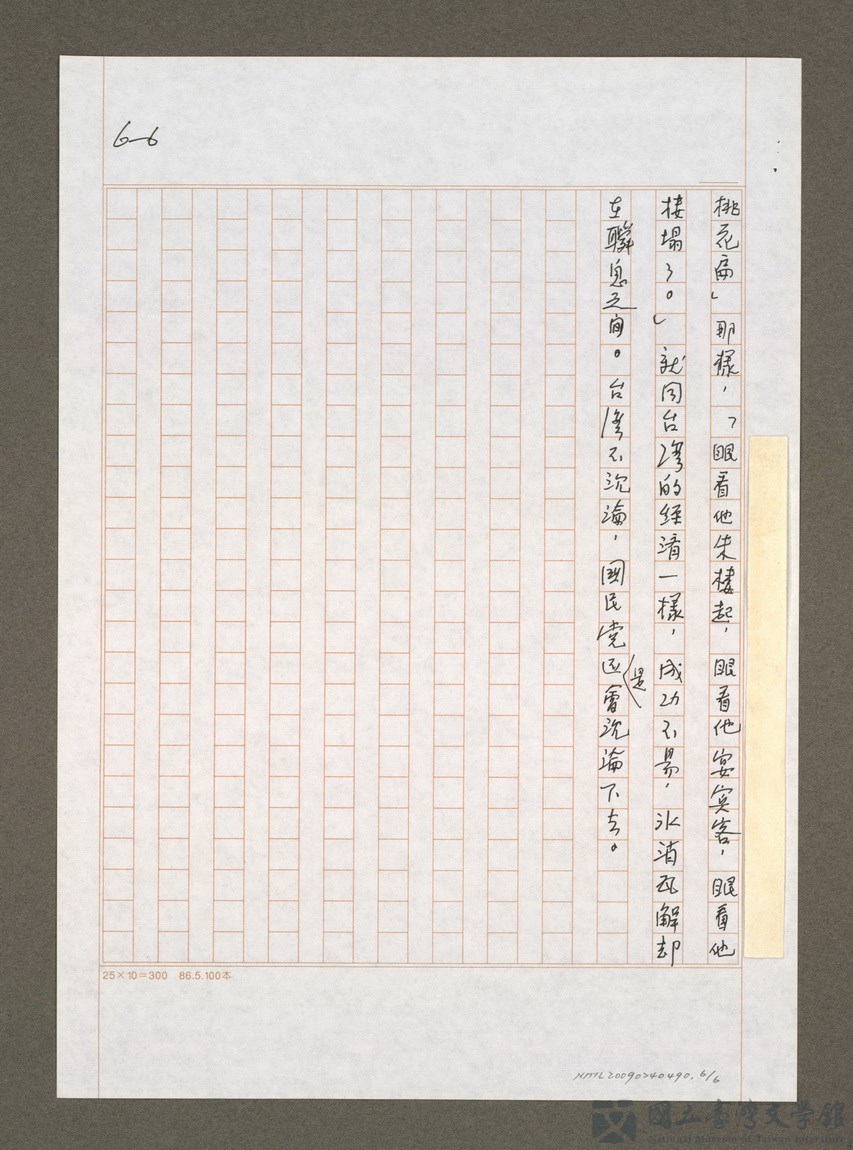 6-6
桃花扇」那樣,「眼看他朱樓起,眼看他宴賓客,眼看他
樓塌了。」就同台灣的經濟一樣,成功不易,冰消瓦解却
在瞬息之间。台灣不沉淪,國民党还是會沉淪下去。
25×10=300 86.5.100本
NMTL20090240490. 6/6
國立臺灣文學館
National Museum of Taiwan Literature